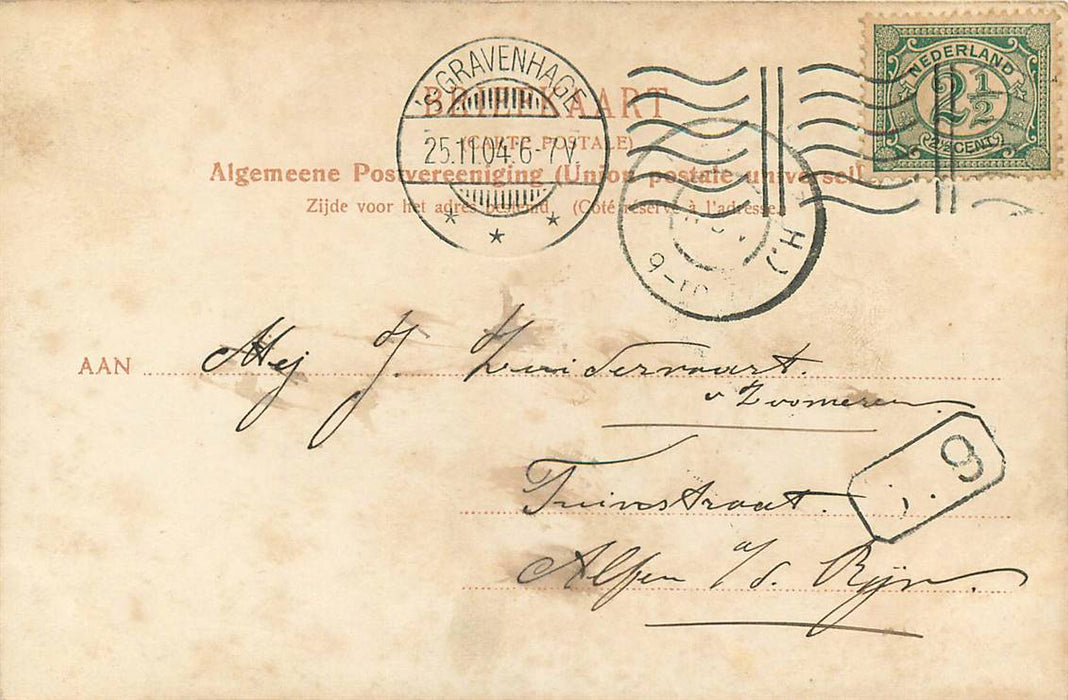 'S-GRAVENHAGE
25.11.04.6-7V
NEDERLAND
2 1/2
(2 1/2 CENT)
BRIEFKAART
(CARTE POSTALE)
Algemeene Postvereeniging (Union postale universelle)
Zijde voor het adres bestemd. (Coté réservé à l'adresse)
H.)
9-10
AAN Mej J. Zuidervaart.
v Zoomeren
Tuinstraat.
9
Alfen a/d. Rijn